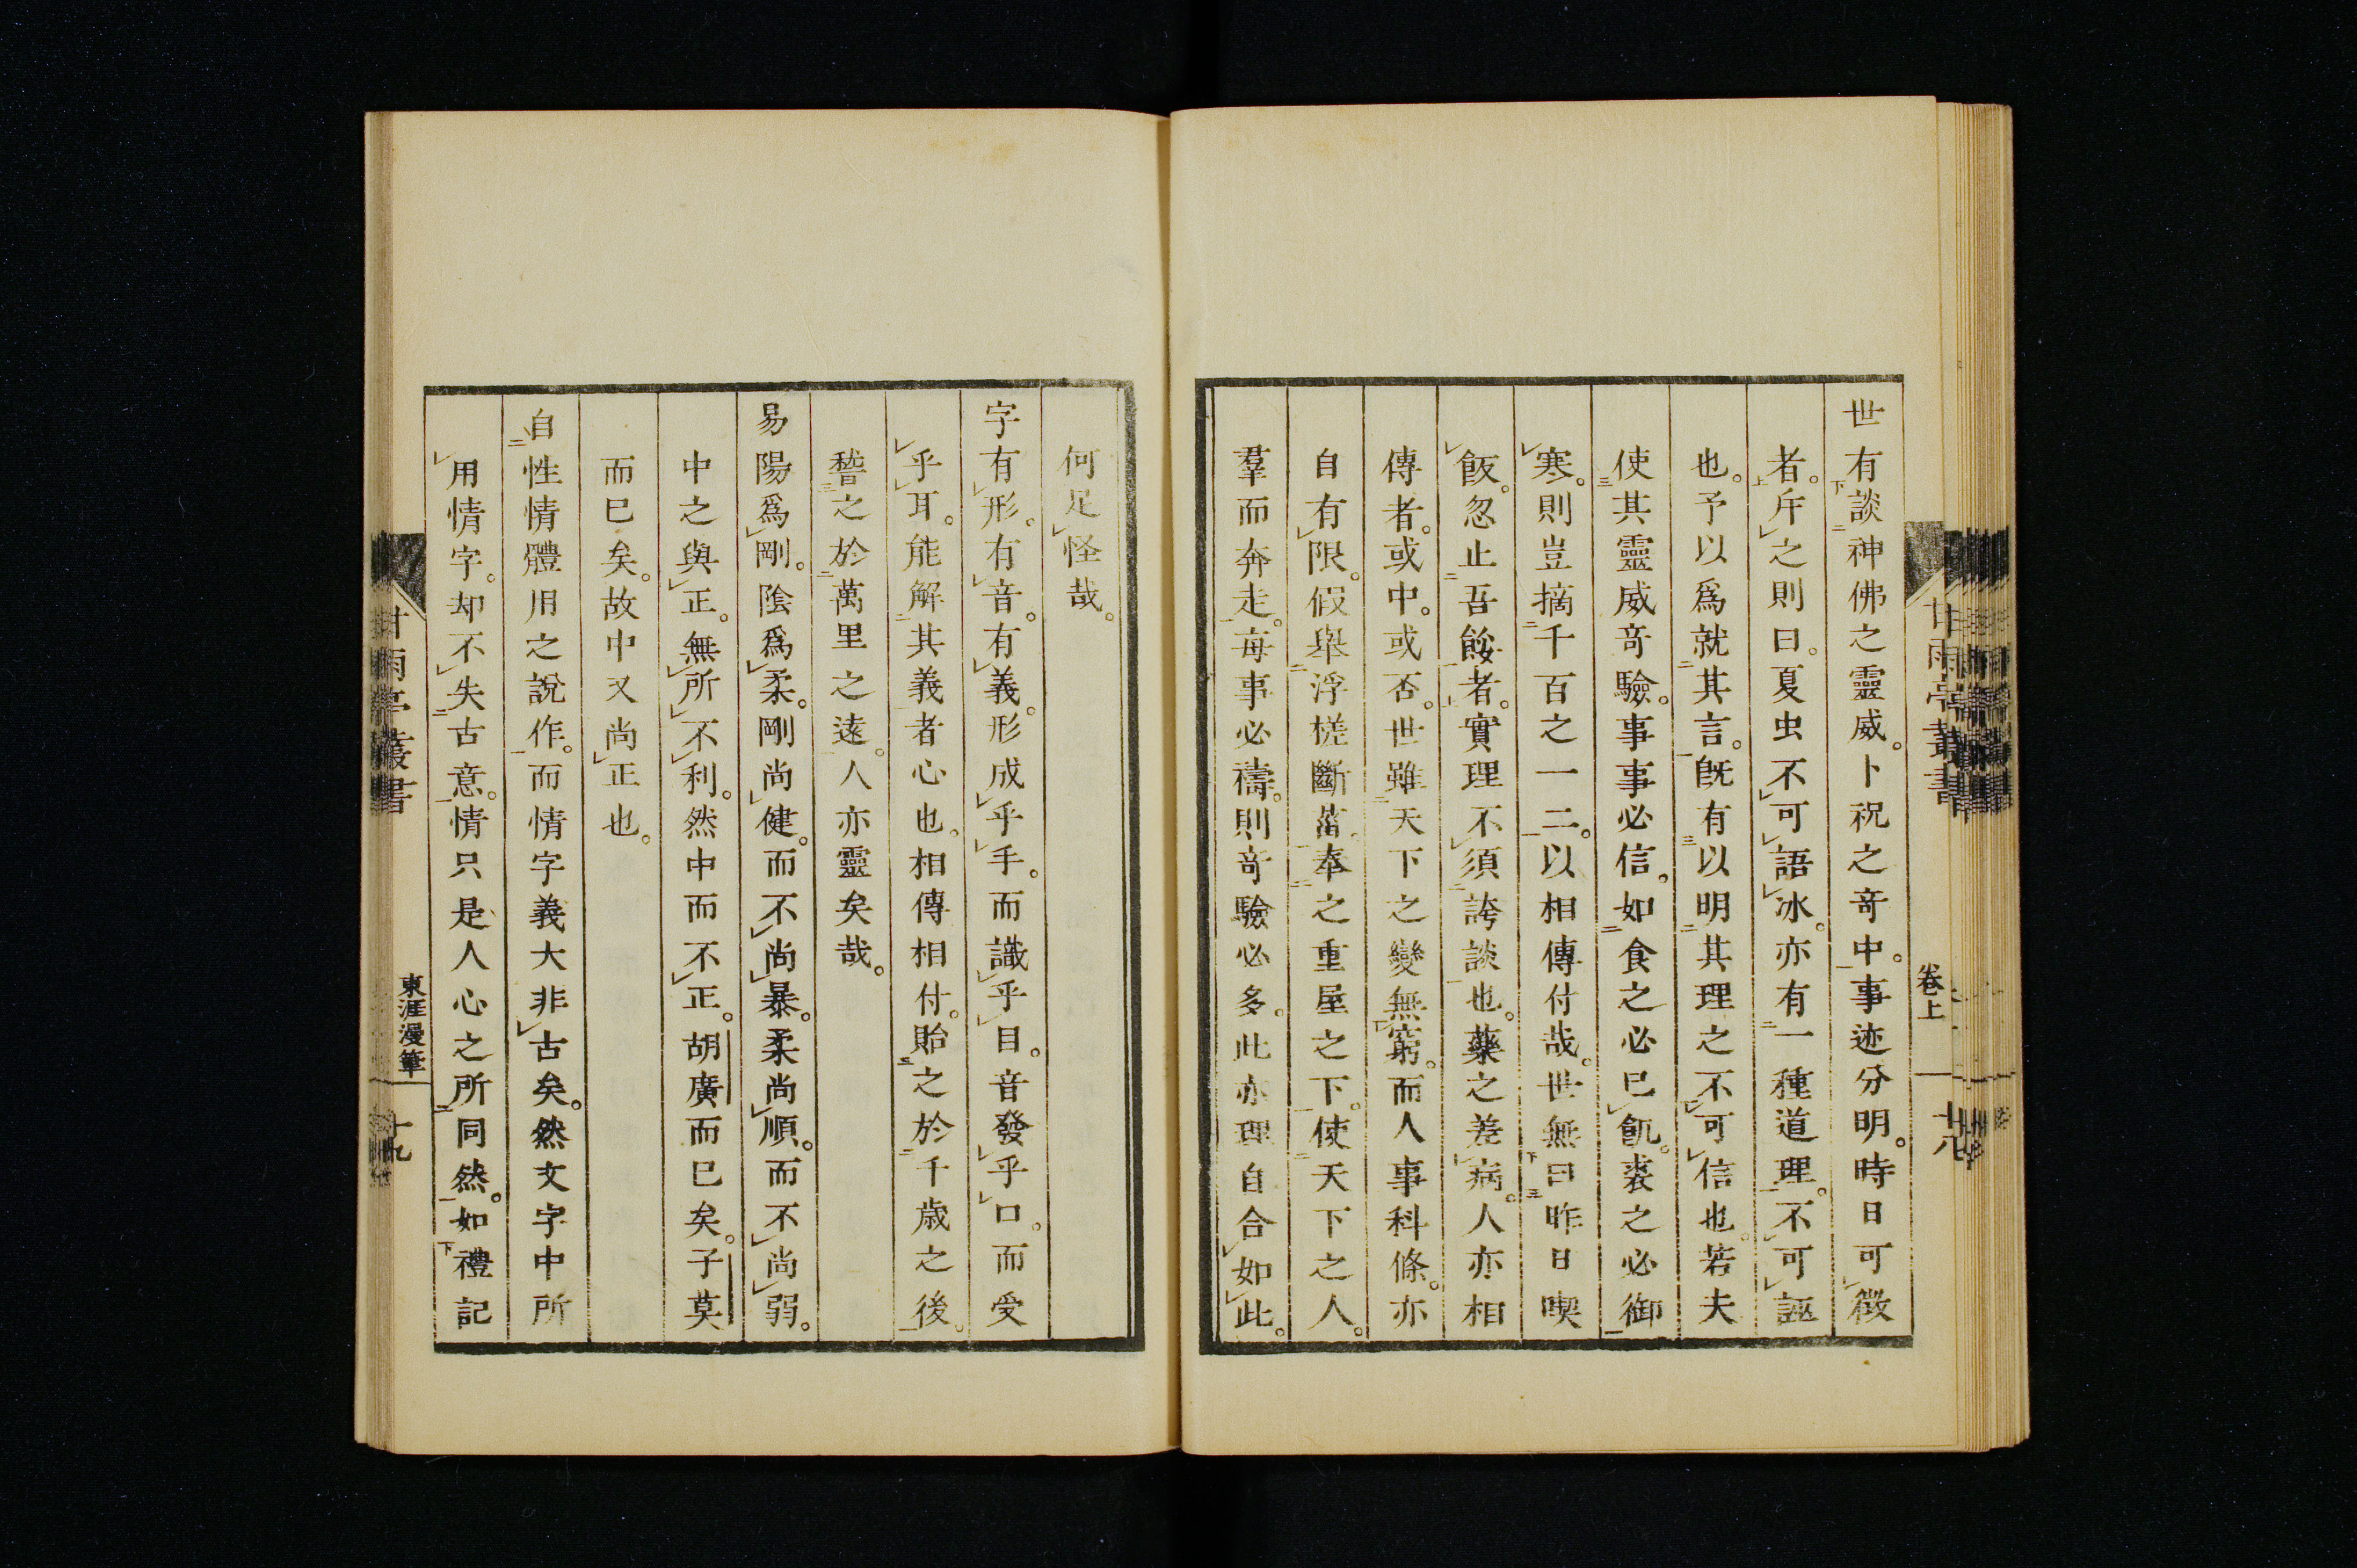 世有談神佛之靈威。卜祝之奇中。事迹分明。時日可徵
者。斥之則曰。夏虫不可語冰。亦有一種道理。不可誣
也。予以爲就其言。既有以明其理之不可信也。若夫
使其靈威奇驗。事事必信。如食之必已飢。裘之必御
寒。則豈摘千百之一二。以相傳付哉。世無曰昨日喫
飯。忽止吾餒者。實理不須誇談也。藥之差病。人亦相
傳者。或中。或否。世雖天下之變無窮。而人事科條。亦
自有限。假舉浮槎斷菑。奉之重屋之下。使天下之人。
羣而奔走。每事必禱。則奇驗必多。此亦理自合如此。
卷上
十八
甘雨亭叢書
何足怪哉。
字有形。有音。有義。形成乎手。而識乎目。音發乎口。而受
乎耳。能解其義者心也。相傳相付。貽之於千歲之後。
替之於萬里之遠。人亦靈矣哉。
易陽爲剛。陰爲柔。剛尚健。而不尚暴。柔尚順。而不尚弱。
中之與正。無所不利。然中而不正。胡廣而已矣。子莫
而已矣。故中又尚正也。
自性情體用之說作。而情字義大非古矣。然文字中所
用情字。却不失古意。情只是人心之所同然。如禮記
甘雨亭叢書
東涯漫筆
十九